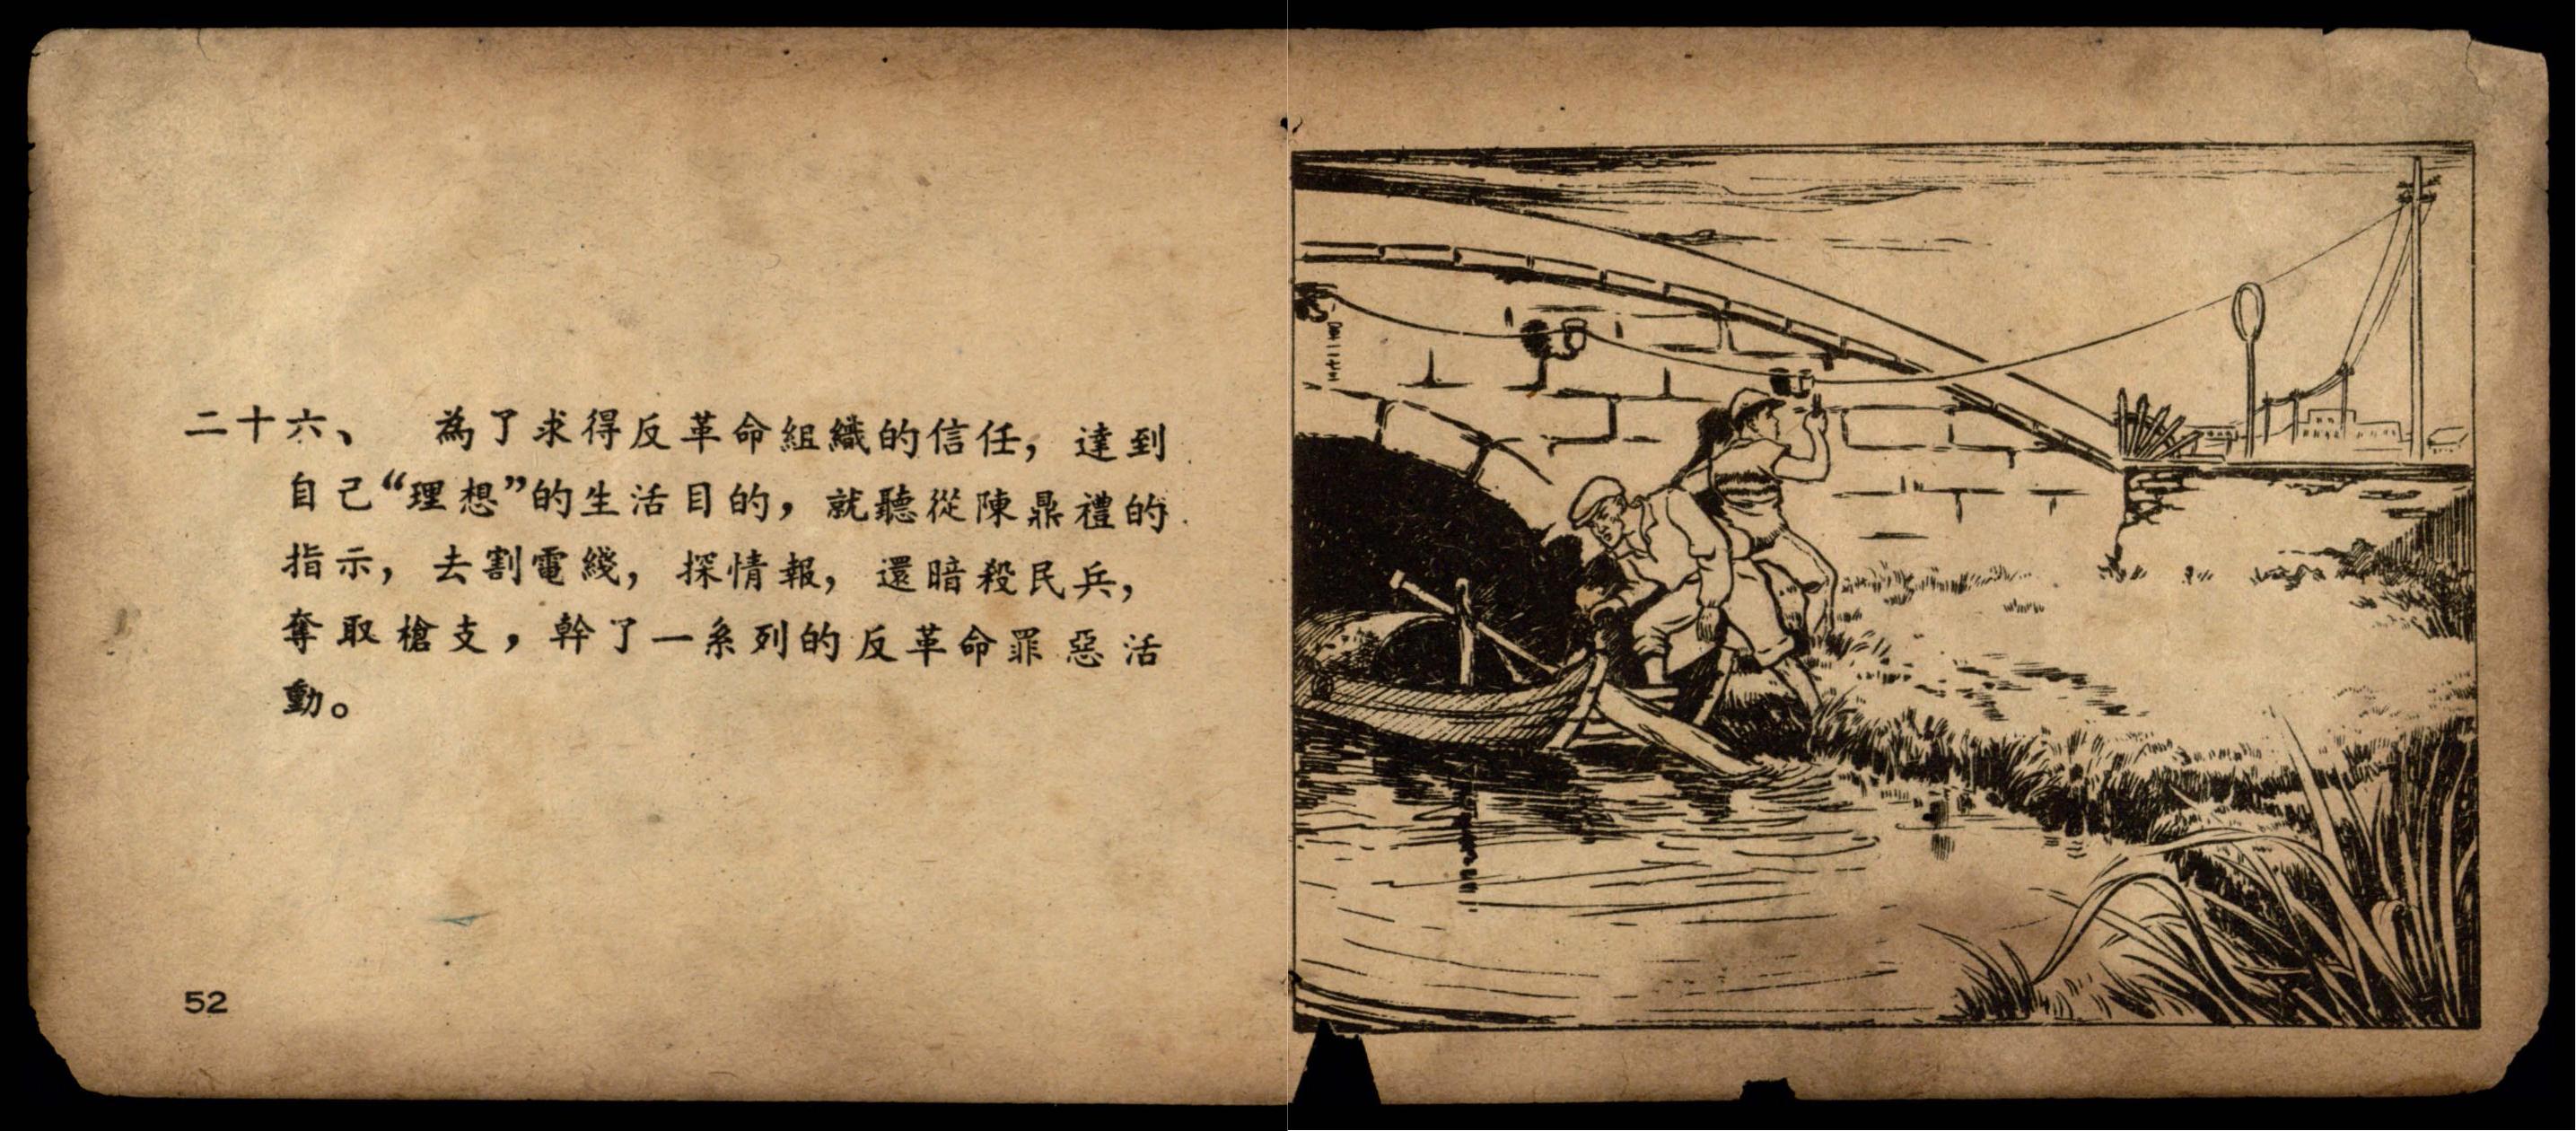 二十六、 為了求得反革命組織的信任，達到
自己“理想”的生活目的，就聽從陳鼎禮的
指示，去割電綫，探情報，還暗殺民兵，
奪取槍支，幹了一系列的反革命罪惡活
動。
52